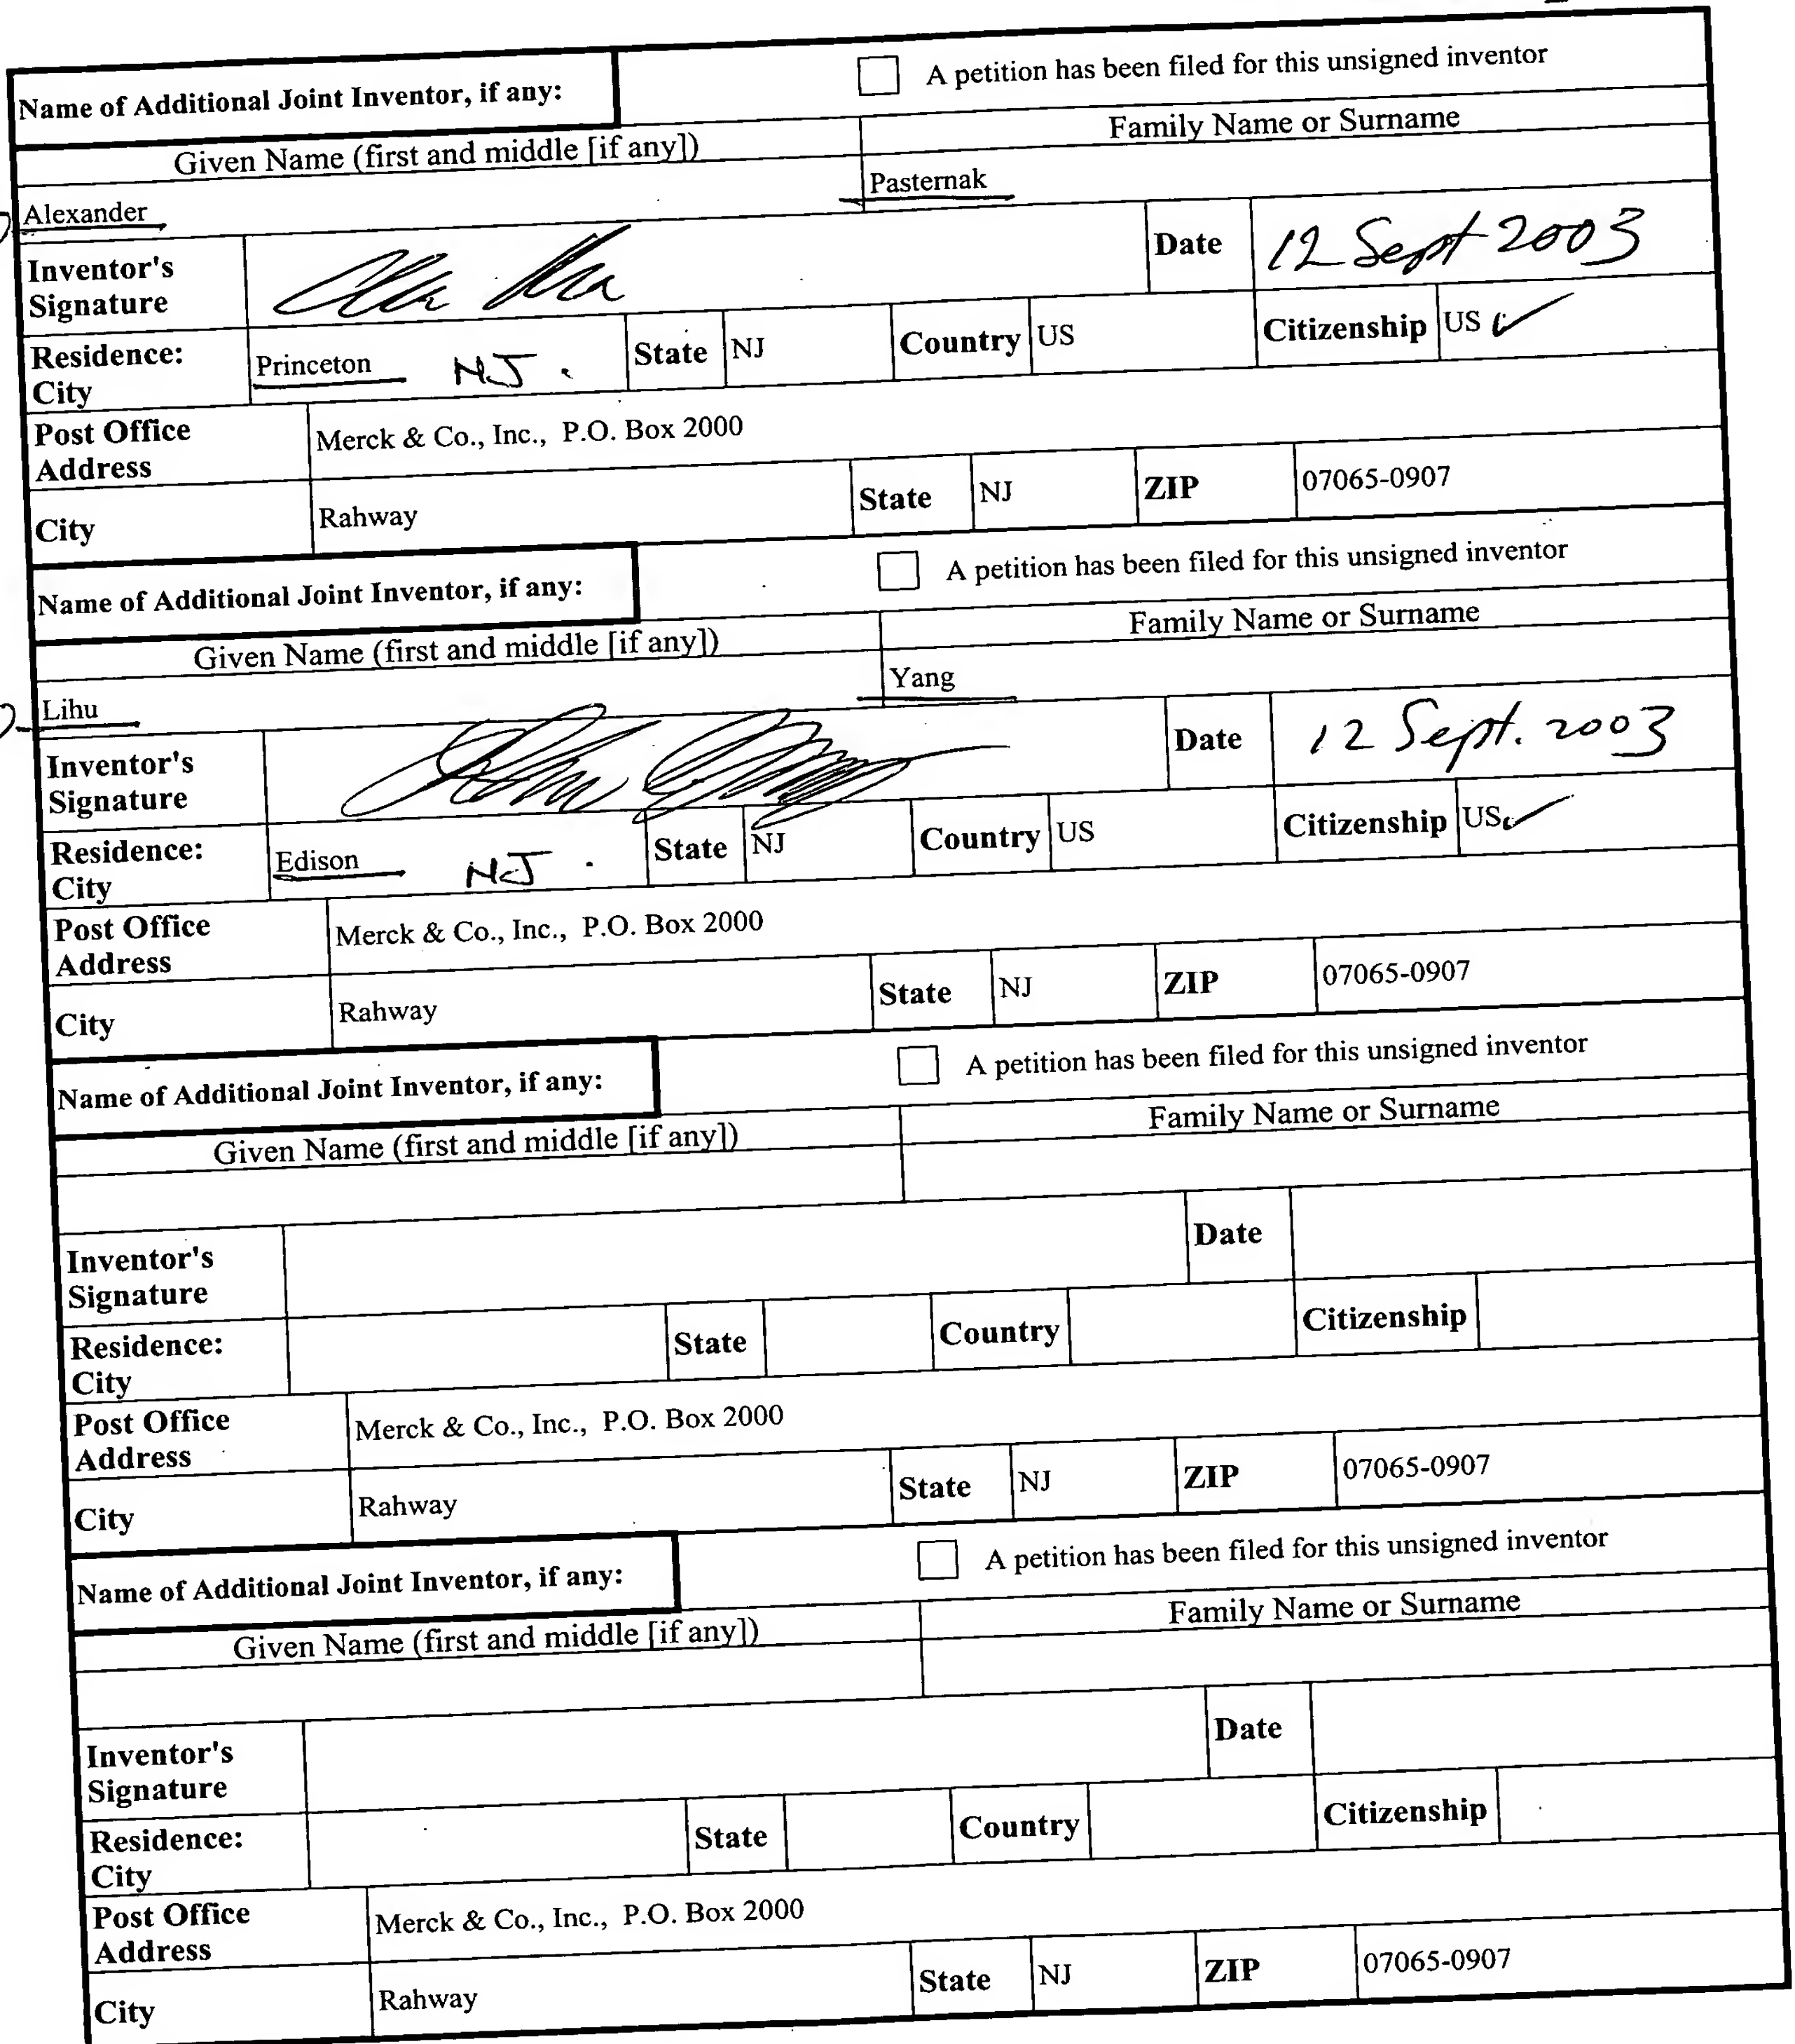 Name of Additional Joint Inventor, if any: A petition has been filed for this unsigned inventor
Given Name (first and middle [if any]) Family Name or Surname
Alexander Pasternak
Inventor's Signature Date 12 Sept 2003
Residence: City Princeton NJ. State NJ Country US Citizenship US
Post Office Address Merck & Co., Inc., P.O. Box 2000
City Rahway State NJ ZIP 07065-0907
Name of Additional Joint Inventor, if any: A petition has been filed for this unsigned inventor
Given Name (first and middle [if any]) Family Name or Surname
Lihu Yang
Inventor's Signature Date 12 Sept. 2003
Residence: City Edison NJ. State NJ Country US Citizenship US
Post Office Address Merck & Co., Inc., P.O. Box 2000
City Rahway State NJ ZIP 07065-0907
Name of Additional Joint Inventor, if any: A petition has been filed for this unsigned inventor
Given Name (first and middle [if any]) Family Name or Surname
Inventor's Signature Date
Residence: City State Country Citizenship
Post Office Address Merck & Co., Inc., P.O. Box 2000
City Rahway State NJ ZIP 07065-0907
Name of Additional Joint Inventor, if any: A petition has been filed for this unsigned inventor
Given Name (first and middle [if any]) Family Name or Surname
Inventor's Signature Date
Residence: City State Country Citizenship
Post Office Address Merck & Co., Inc., P.O. Box 2000
City Rahway State NJ ZIP 07065-0907